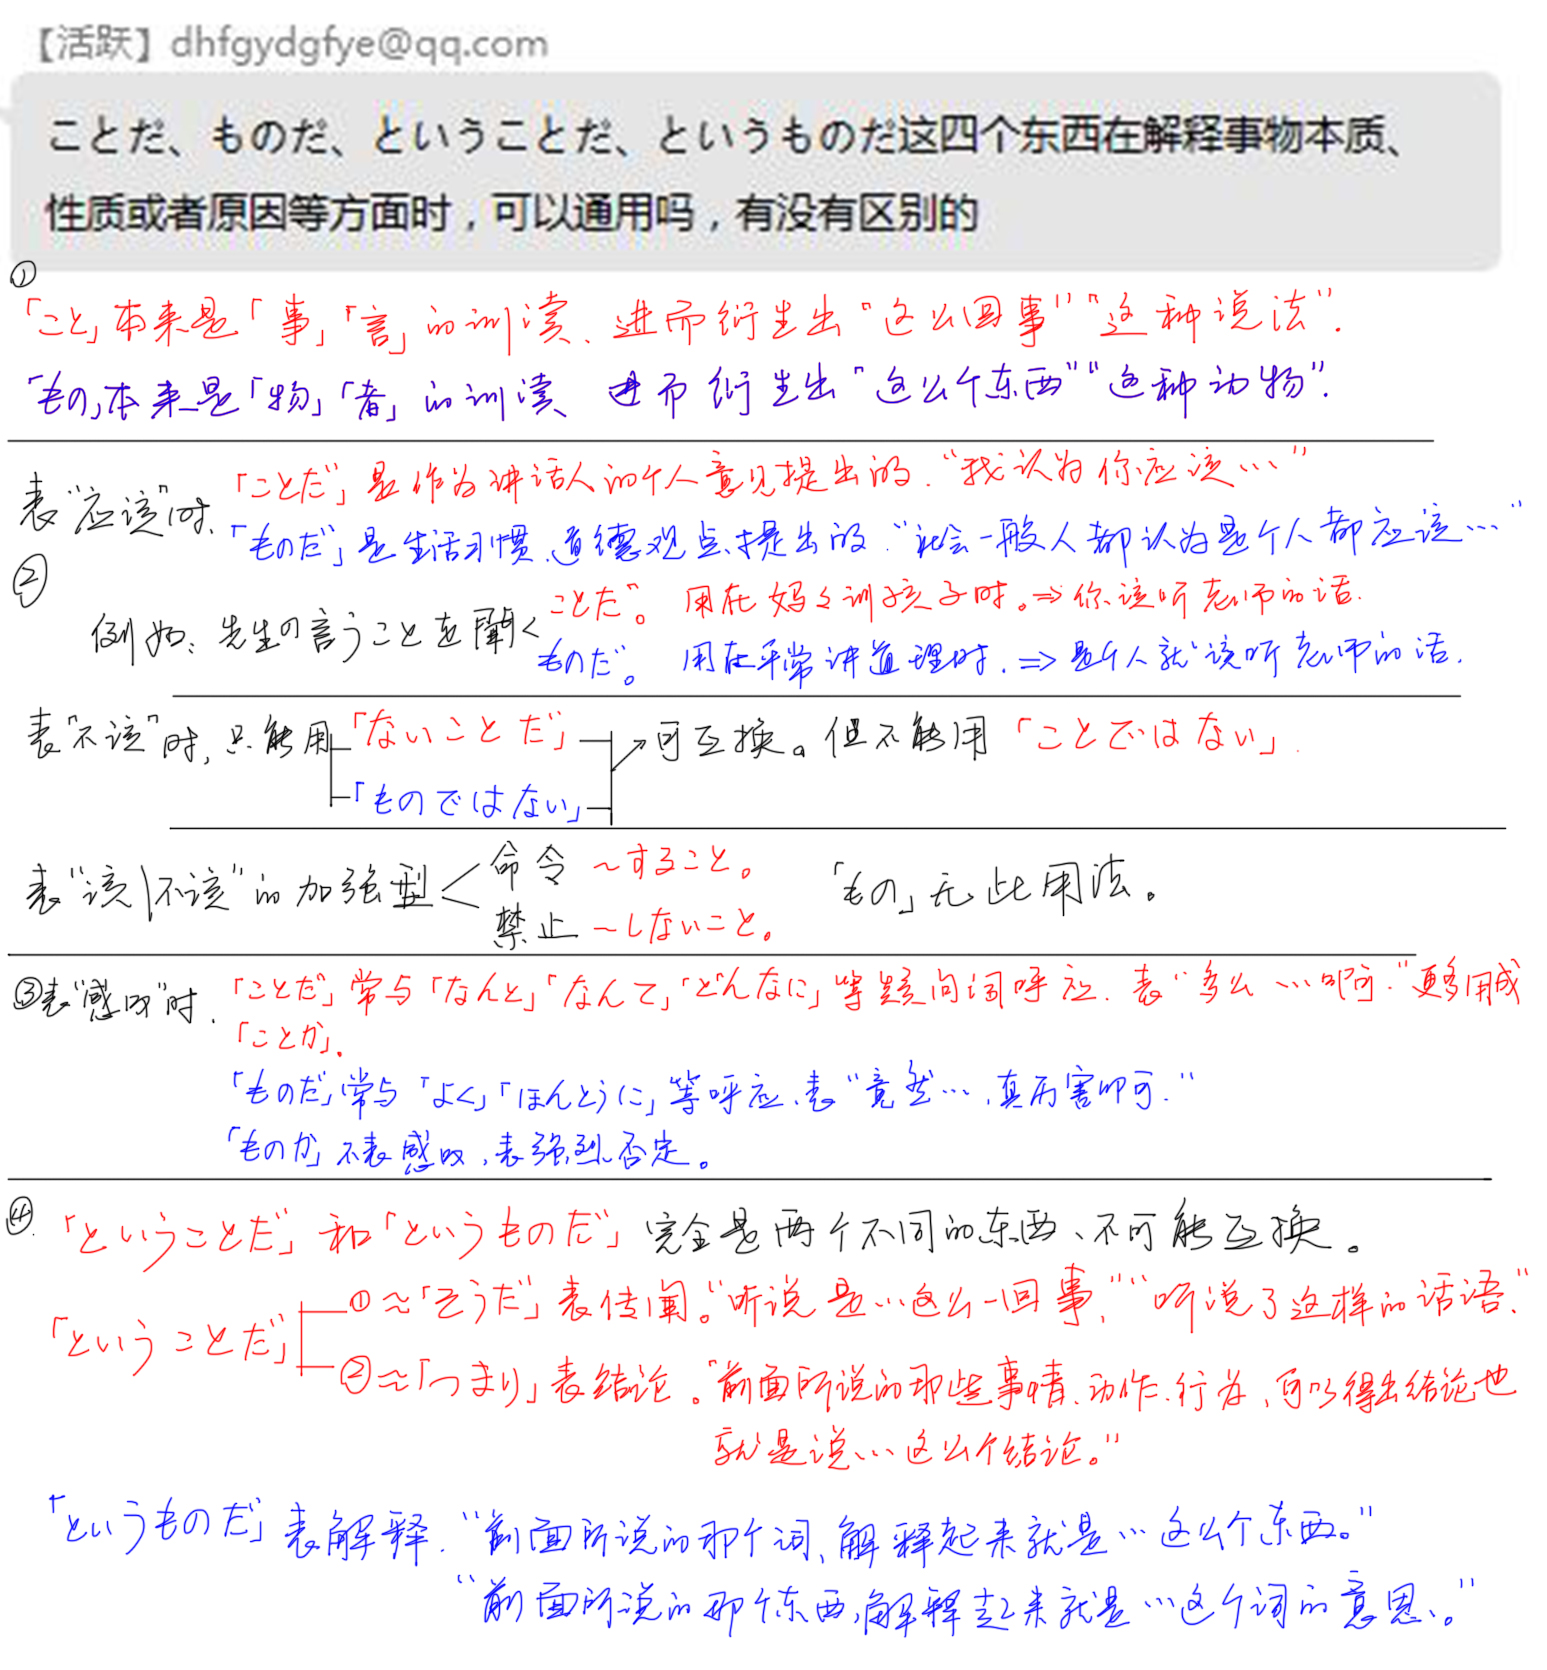 【活跃】dhfgydgfye@qq.com
ことだ、ものだ、ということだ、というものだ这四个东西在解释事物本质、
性质或者原因等方面时，可以通用吗，有没有区别的
①
「こと」本来是「事」「言」的训读、进而衍生出“这么回事”“这种说法”.
「もの」本来是「物」「者」的训读、进而衍生出“这么个东西”“这种动物”.
表“应该”时.
「ことだ」是作为讲话人的个人意见提出的.“我认为你应该…”
「ものだ」是生活习惯、道德观点提出的.“社会一般人都认为是个人都应该…”
②
例如: 先生の言うことを聞く
ことだ。 用在妈々训孩子时。⇒你该听老师的话.
ものだ。 用在平常讲道理时.⇒是个人就该听老师的话.
表“不该”时,只能用「ないことだ」可互换。但不能用「ことではない」.
「ものではない」
表“该\不该”的加强型
命令 ～すること。
禁止 ～しないこと。
「もの」无此用法。
③表“感叹”时.
「ことだ」常与「なんと」「なんて」「どんなに」等疑问词呼应.表“多么…啊.”更多用成
「ことか」.
「ものだ」常与「よく」「ほんとうに」等呼应、表“竟然…,真厉害啊.”
「ものか」不表感叹,表强烈否定。
④.「ということだ」和「というものだ」完全是两个不同的东西、不可能互换。
「ということだ」
①≈「そうだ」表传闻。“听说是…这么一回事,”“听说了这样的话语.”
②≈「つまり」表结论。“前面所说的那些事情、动作、行为,可以得出结论也
就是说…这么个结论。”
「というものだ」表解释.“前面所说的那个词、解释起来就是…这么个东西。”
“前面所说的那个东西,解释起来就是…这个词的意思.。”